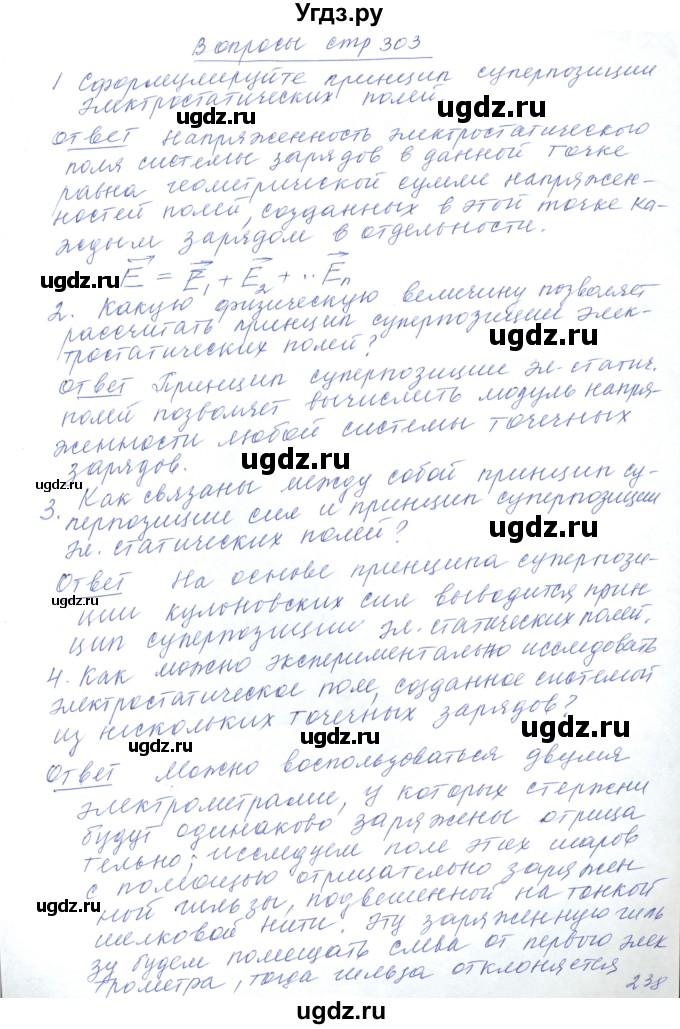 Угдз.ру
Вопросы стр 303
1 Сформулируйте принцип суперпозиции
электростатических полей
ugdz.ru
ugdz.ru
Ответ Напряженность электростатического
поля системы зарядов в данной точке
равна геометрической сумме напряжен-
ностей полей, созданных в этой точке ка-
ждым зарядом в отдельности.
ugdz.ru
ugdz.ru
E = E1 + E2 + ..En
2. Какую физическую величину позволяет
рассчитать принцип суперпозиции элек-
тростатических полей?
ugdz.ru
ugdz.ru
Ответ Принцип суперпозиции эл-статич.
полей позволяет вычислить модуль напря-
женности любой системы точечных
зарядов.
ugdz.ru
ugdz.ru
3. Как связаны между собой принцип су-
перпозиции сил и принцип суперпозиции
эл. статических полей?
ugdz.ru
Ответ На основе принципа суперпози-
ugdz.ru
ции кулоновских сил выводится прин-
цип суперпозиции эл. статических полей.
4. Как можно экспериментально исследовать
электростатическое поле, созданное системой
из нескольких точечных зарядов?
ugdz.ru
ugdz.ru
Ответ Можно воспользоваться двумя
электрометрами, у которых стержни
будут одинаково заряжены отрица
тельно; исследуем поле этих шаров
ugdz.ru
с помощью отрицательно заряжен
ной гильзы, подвешенной на тонкой
ugdz.ru
шелковой нити. Эту заряженную гиль
зу будем помещать слева от первого элек
трометра, тогда гильза отклоняется
238
ugdz.ru